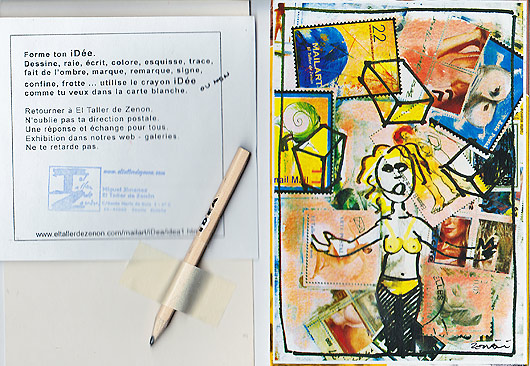 Forme ton iDée.
Dessine, raie, écrit, colore, esquisse, trace,
fait de l'ombre, marque, remarque, signe,
confine, frotte ... utilise le crayon iDée
ou non
comme tu veux dans la carte blanche.
Retourner à El Taller de Zenon.
N'oublie pas ta direction postale.
Une réponse et échange pour tous.
Exhibition dans notres web - galeries.
Ne te retarde pas.
www.eltallerdezenon.com
Miguel Jimenez
El Taller de Zenón
www.eltallerdezenon.com/mailart/iDea/idea1.html
iDEA
MAILART
22
nail Mail
zenón